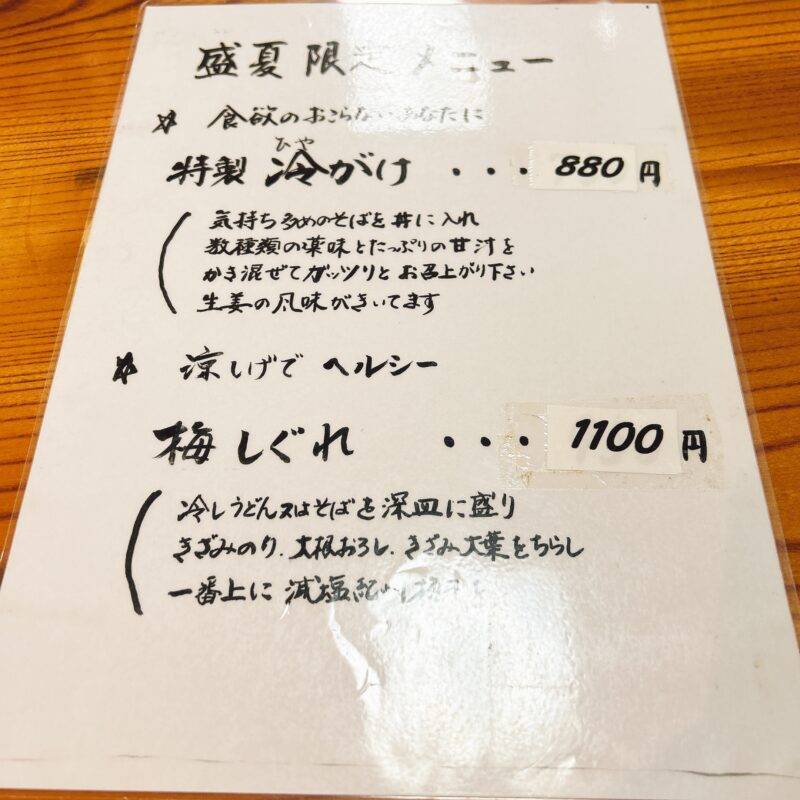 盛夏限定メニュー
食欲のおこらないあなたに
ひや
特製 冷がけ ・・・ 880円
気持ち多めのそばを丼に入れ
数種類の薬味とたっぷりの甘汁を
かき混ぜてガッツリとお召上がり下さい
生姜の風味がきいてます
涼しげで ヘルシー
梅しぐれ ・・・ 1100円
冷しうどん又はそばを深皿に盛り
きざみのり、大根おろし、きざみ大葉をちらし
一番上に 減塩紀州梅干を